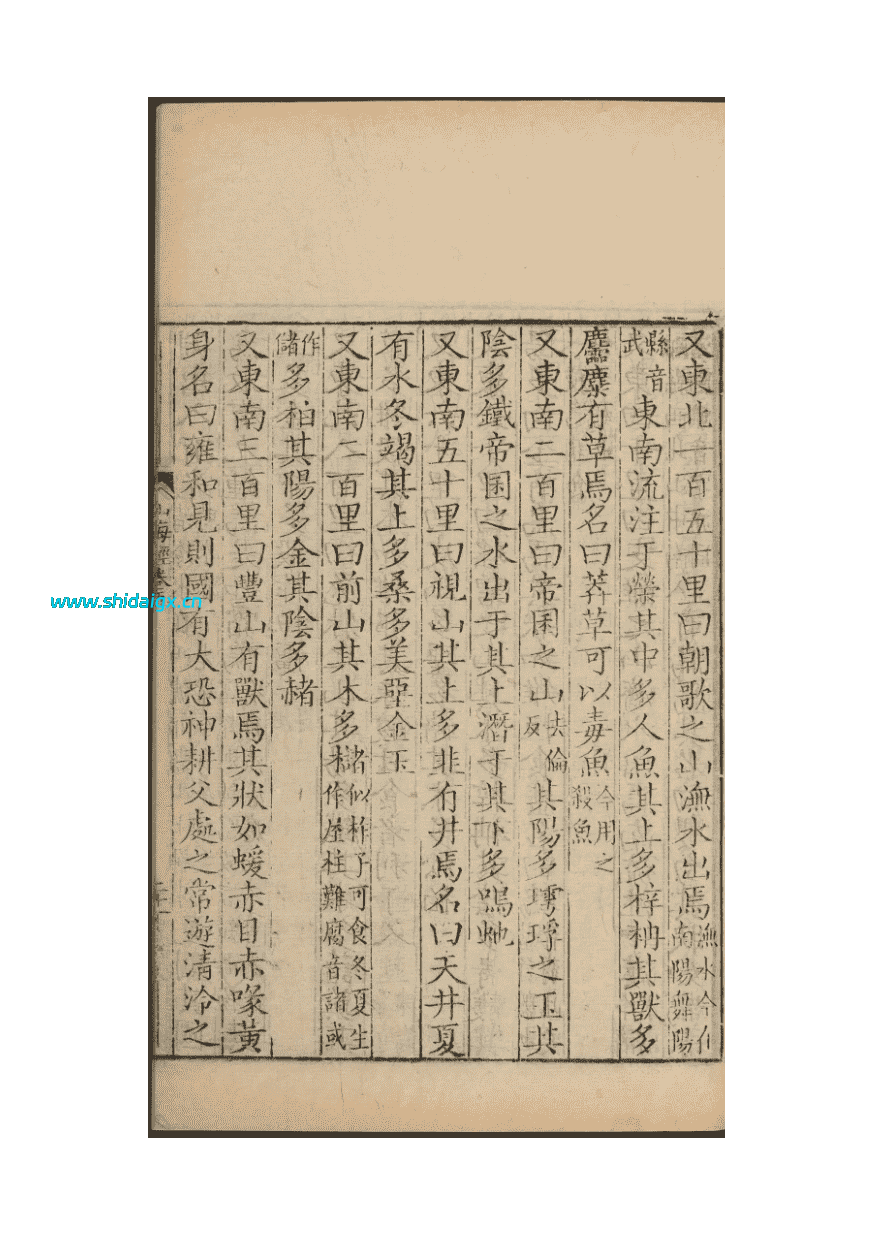 又東北一百五十里曰朝歌之山潕水出焉潕水今在南陽舞陽
縣音武東南流注于滎其中多人魚其上多梓枏其獸多
麢麋有草焉名曰莽草可以毒魚今用之殺魚
又東南二百里曰帝囷之山去倫反其陽多㻬琈之玉其
陰多鐵帝囷之水出于其上潛于其下多鳴蛇
又東南五十里曰視山其上多韭有井焉名曰天井夏
有水冬竭其上多桑多美堊金玉
又東南二百里曰前山其木多櫧似柞子可食冬夏生作屋柱難腐音諸或
作儲多柏其陽多金其陰多赭
又東南三百里曰豐山有獸焉其狀如蝯赤目赤喙黃
身名曰雍和見則國有大恐神耕父處之常遊清泠之
山海經卷五
www.shidaigx.cn